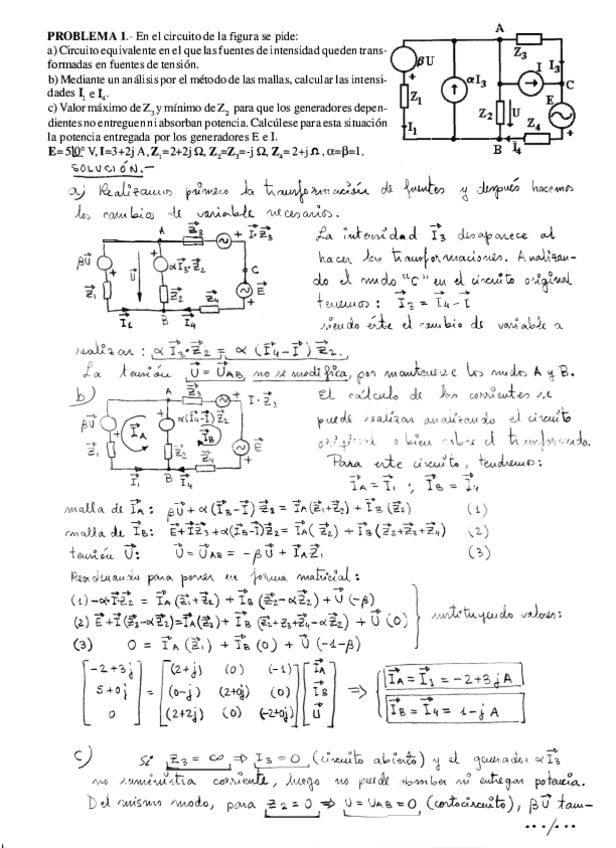 PROBLEMA 1.- En el circuito de la figura se pide:
a) Circuito equivalente en el que las fuentes de intensidad queden trans-
formadas en fuentes de tensión.
b) Mediante un análisis por el método de las mallas, calcular las intensi-
dades I₁ e I₄.
c) Valor máximo de Z₃ y mínimo de Z₂ para que los generadores depen-
dientes no entreguen ni absorban potencia. Calcúlese para esta situación
la potencia entregada por los generadores E e I.
E=5|0° V, I=3+2j A, Z₁=2+2j Ω, Z₂=Z₃=-j Ω, Z₄= 2+j Ω, α=β=1.
A
βU
Z₃
αI₃
I
I₃
C
Z₁
Z₂
U
E
I₁
Z₄
B
I₄
SOLUCIÓN.-
a) Realizamos primero la transformación de fuentes y después hacemos
los cambios de variable necesarios.
A
Z₃
I·Z₃
βU
U
αI₃·Z₂
C
Z₁
Z₂
Z₄
E
I₁
B
I₄
La intensidad I₃ desaparece al
hacer las transformaciones. Analizan-
do el nudo "C" en el circuito original
tenemos: I₃ = I₄ - I
siendo éste el cambio de variable a
realizar: α I₃·Z₂ = α (I₄-I) Z₂.
La tensión U = U_AB, no se modifica, por mantenerse los nudos A y B.
b)
A
Z₃
I·Z₃
βU
I_A
α(I₄-I)Z₂
I_B
Z₁
Z₂
Z₄
E
I₁
B
I₄
El cálculo de las corrientes se
puede realizar analizando el circuito
original o bien sobre el transformado.
Para este circuito, tendremos:
I_A = I₁ ; I_B = I₄
malla de I_A: βU + α(I_B-I) Z₂ = I_A(Z₁+Z₂) + I_B (Z₂) (1)
malla de I_B: E+IZ₃+α(I_B-I)Z₂ = I_A( Z₂) + I_B(Z₂+Z₃+Z₄) (2)
tensión U: U = U_AB = -βU + I_A Z₁ (3)
Reordenando para poner en forma matricial:
(1) -α·I·Z₂ = I_A (Z₁+Z₂) + I_B (Z₂-αZ₂) + U (-β)
(2) E+I(Z₃-αZ₂)=I_A(Z₂)+ I_B (Z₂+Z₃+Z₄-αZ₂) + U (0)
(3) 0 = I_A (Z₁) + I_B (0) + U (-1-β)
sustituyendo valores:
-2+3j (2+j) (0) (-1) I_A
5+0j = (0-j) (2+0j) (0) I_B ⇒
0 (2+2j) (0) (-2+0j) U
I_A = I₁ = -2+3j A
I_B = I₄ = 1-j A
c) Si Z₃ = ∞ ⇒ I₃ = 0 (circuito abierto) y el generador αI₃
no suministra corriente, luego no puede absorber ni entregar potencia.
Del mismo modo, para Z₂ = 0 ⇒ U = U_AB = 0, (cortocircuito), βU tam-
.../...